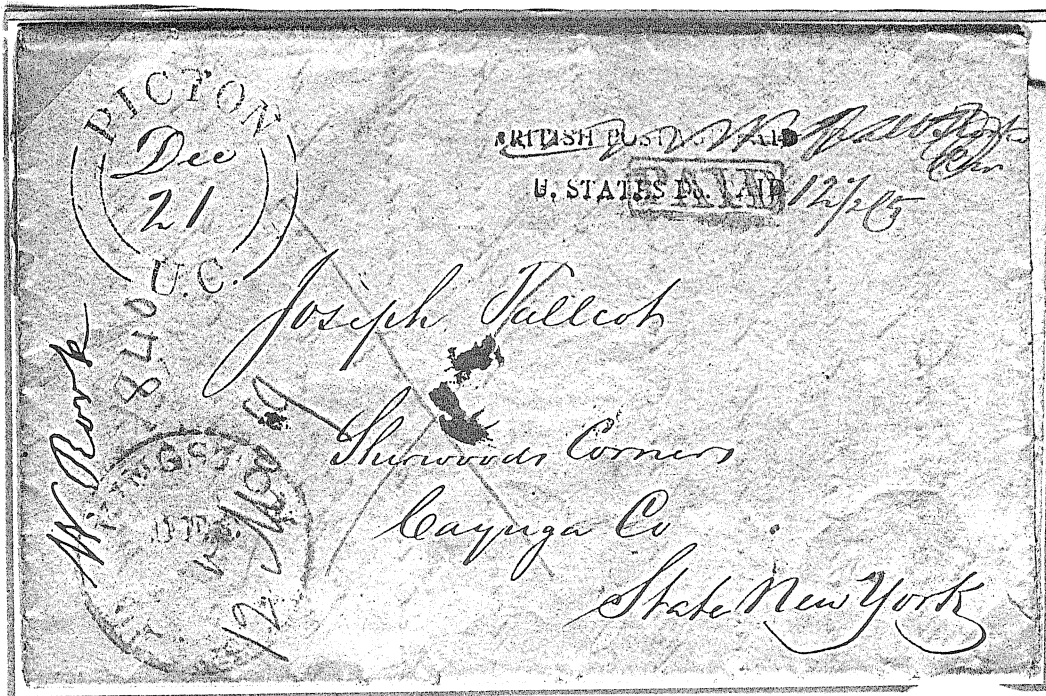 PICTON
Dec
21
U.C.
1840
BRITISH POSTAGE PAID
U. STATES Po. PAID
PAID
Joseph Tallcot
Sherwoods Corners
Cayuga Co
State New York
12 Mo